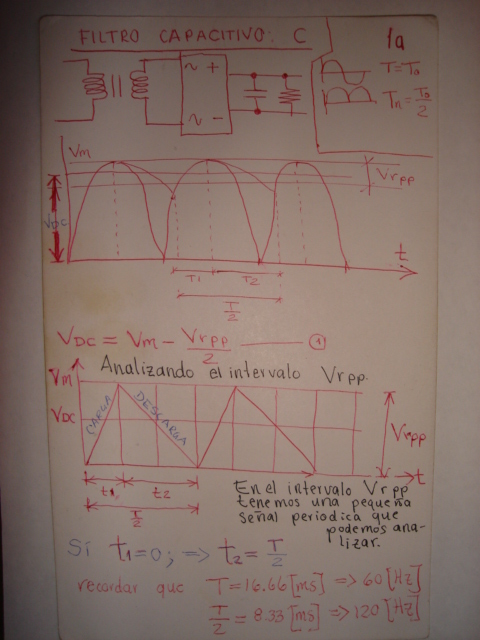 FILTRO CAPACITIVO: C
1a
T = To
Tn = To/2
~ +
~ -
Vm
Vrpp
VDC
t
T1 T2
T/2
VDC = Vm - Vrpp/2 ——— ①
Analizando el intervalo Vrpp.
Vm
VDC
CARGA
DESCARGA
Vrpp
t
t1 t2
T/2
En el intervalo Vrpp
tenemos una pequeña
señal periodica que
podemos ana-
lizar.
Sí t1=0; => t2 = T/2
recordar que T = 16.66 [ms] => 60 [Hz]
T/2 = 8.33 [ms] => 120 [Hz]